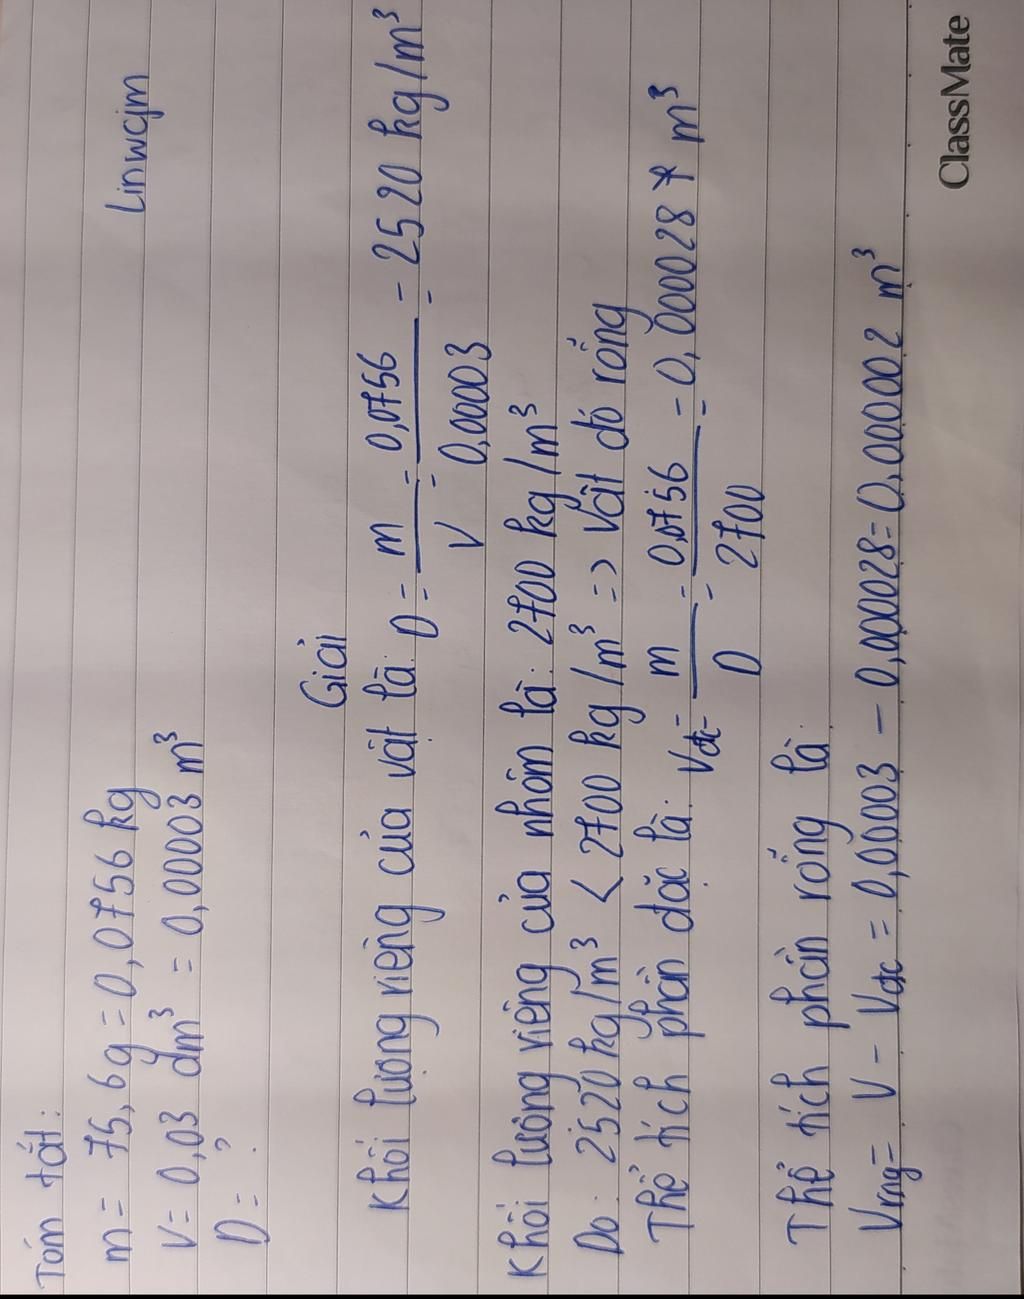 Tóm tắt:
m = 75,6g = 0,0756 kg
Linwcjm
V = 0,03 dm³ = 0,00003 m³
D = ?
Giải
Khối lượng riêng của vật là: D = m/V = 0,0756/0,00003 = 2520 kg/m³
Khối lượng riêng của nhôm là: 2700 kg/m³
Do: 2520 kg/m³ < 2700 kg/m³ => Vật đó rỗng
Thể tích phần đặc là: Vđc = m/D = 0,0756/2700 = 0,000028 * m³
Thể tích phần rỗng là:
Vrng = V - Vđc = 0,00003 - 0,000028 = 0,000002 m³
ClassMate